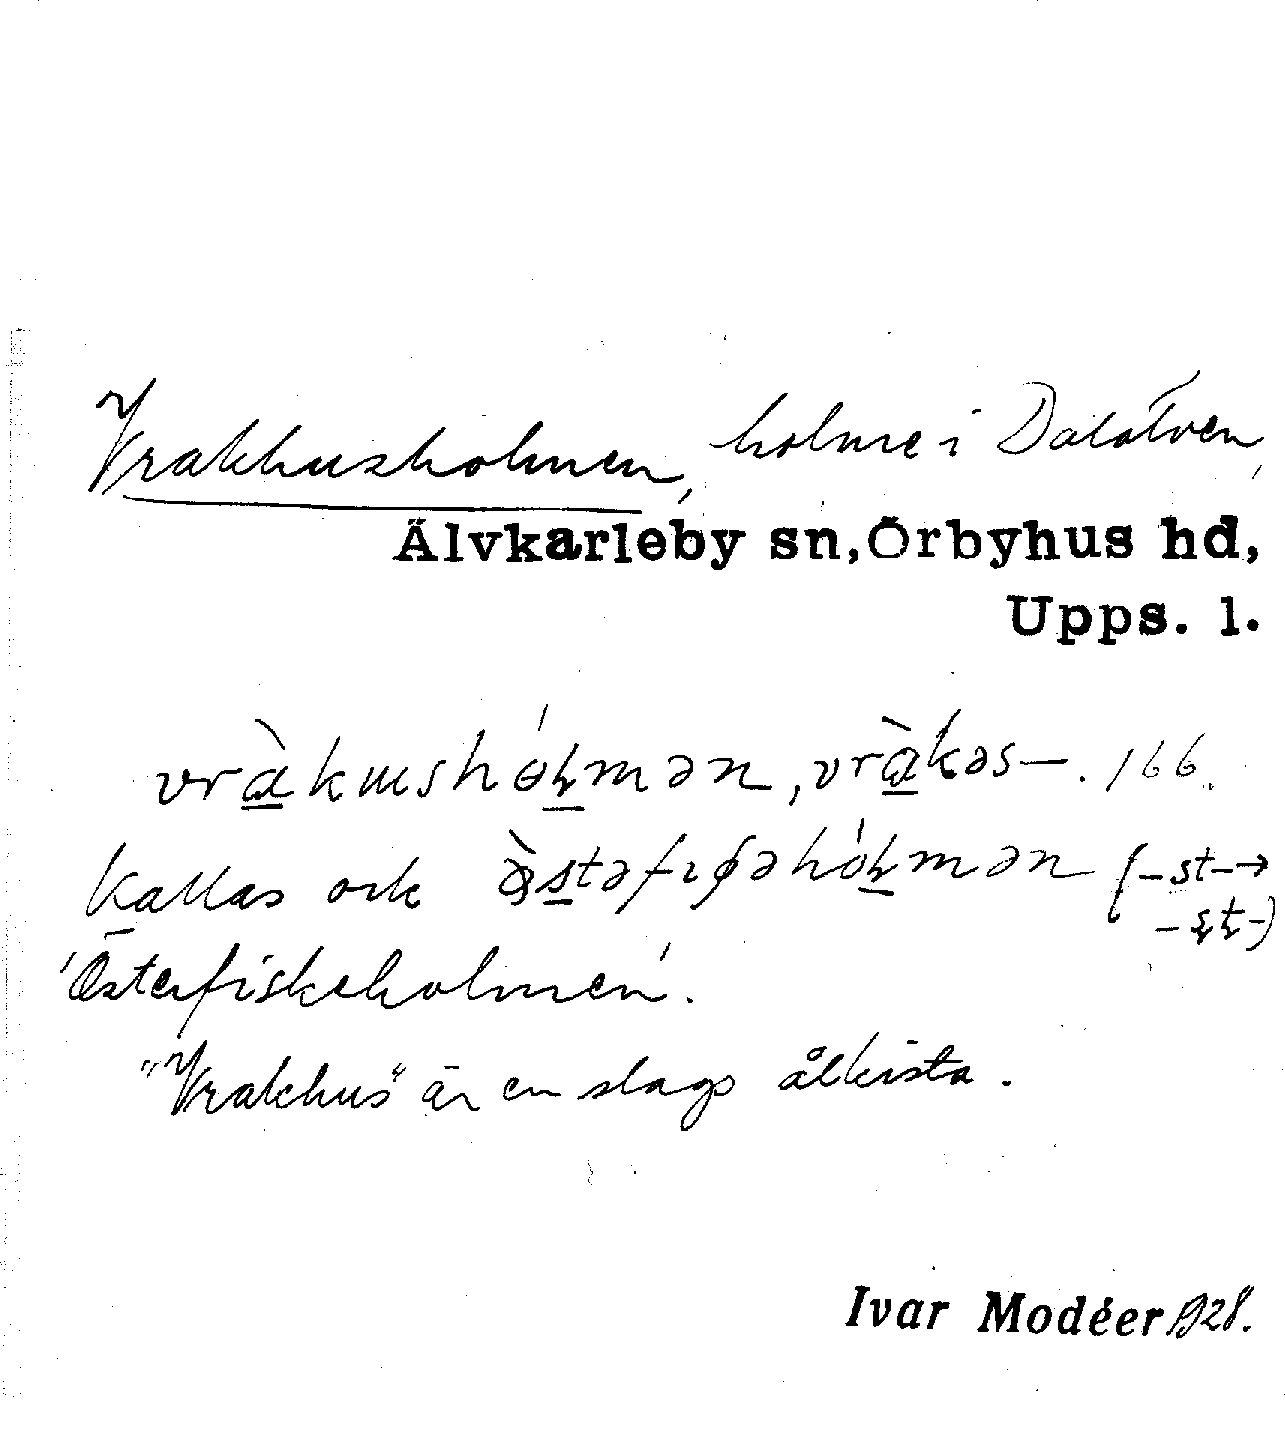 Vrakhusholmen, holme i Dalälven,
Älvkarleby sn, Örbyhus hd,
Upps. l.
vràkɯshóɫmən, vràkəs–. 166.
Kallas ock (–st–→
–ʂʈ–)
'Österfiskeholmen'.
"Vrakhus" är en slags ålkista.
Ivar Modéer 1928.